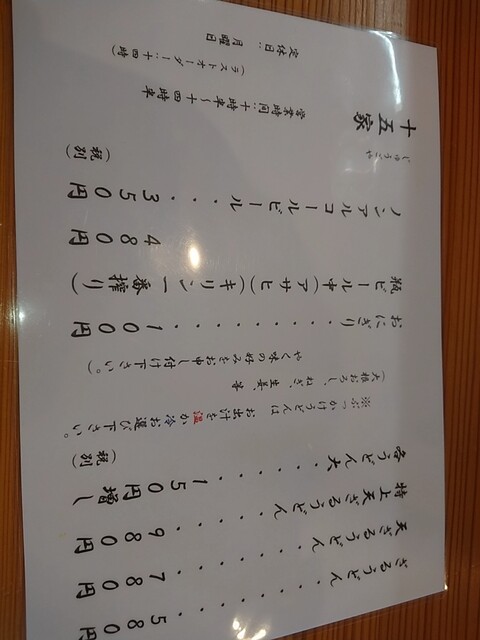 ざるうどん・・・・・・・580円
天ざるうどん・・・・・・780円
特上天ざるうどん・・・・・980円
各うどん大・・・・・・150円増し
(税別)
※ぶっかけうどんは お出汁を温か冷お選び下さい。
(大根おろし、ねぎ、生姜、等
やく味の好みをお申し付け下さい。)
おにぎり・・・・・・・・・100円
瓶ビール中(アサヒ)(キリン一番搾り)
480円
ノンアルコールビール・・・350円
(税別)
じゅうごや
十五家
営業時間:十時半〜十四時半
(ラストオーダー:十四時)
定休日:月曜日